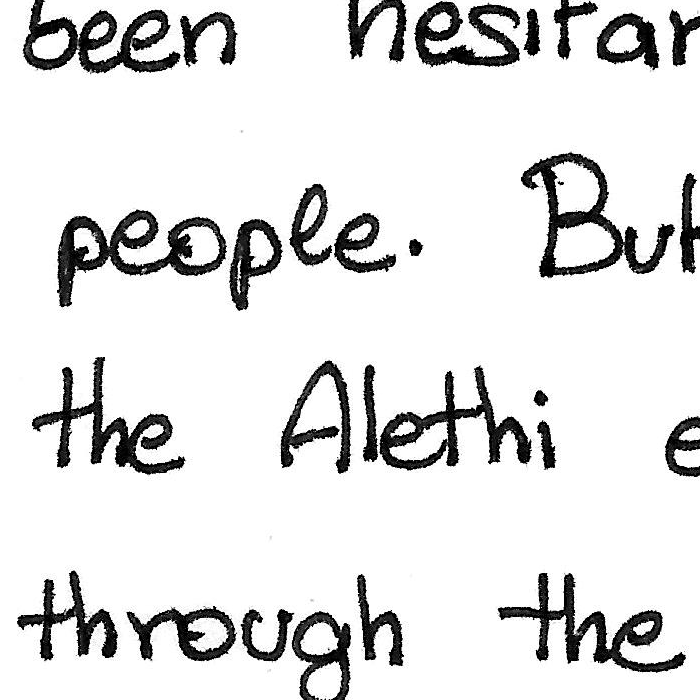 been hesitan
people. But
the Alethi e
through the